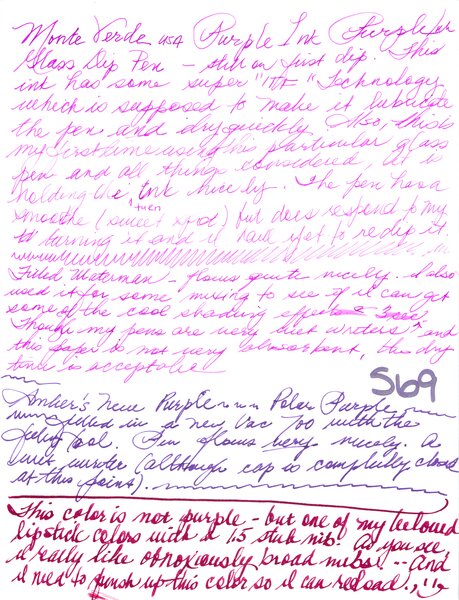 Monte Verde USA Purple Ink Purple for
Glass Dip Pen - still on just dip. This
ink has some super "ITF" Technology
which is supposed to make it lubricate
the pen and dry quickly. Also, this is
my first time using this particular glass
pen and all things considered, it is
holding the ink nicely. The pen has a
smoothe (sweet spot) but does respond to my
turning it and I have yet to redip it
Filled Waterman - flows quite nicely. I also
used it for some musing to see if it can get
some of the cool shading effect
Though my pens are very wet writers and
this paper is not very absorbent, the dry
time is acceptable
569
Amber's new Purple Polar Purple
filled in a new Vac 700 with the
Pen flows very nicely. A
wet writer (although cap is completely closed
at this point).
This color is not purple - but one of my beloved
lipstick colors with a 1.5 stub nib. As you see
I really like obnoxiously broad nibs -- And
I need to finish up this color so I can reload.